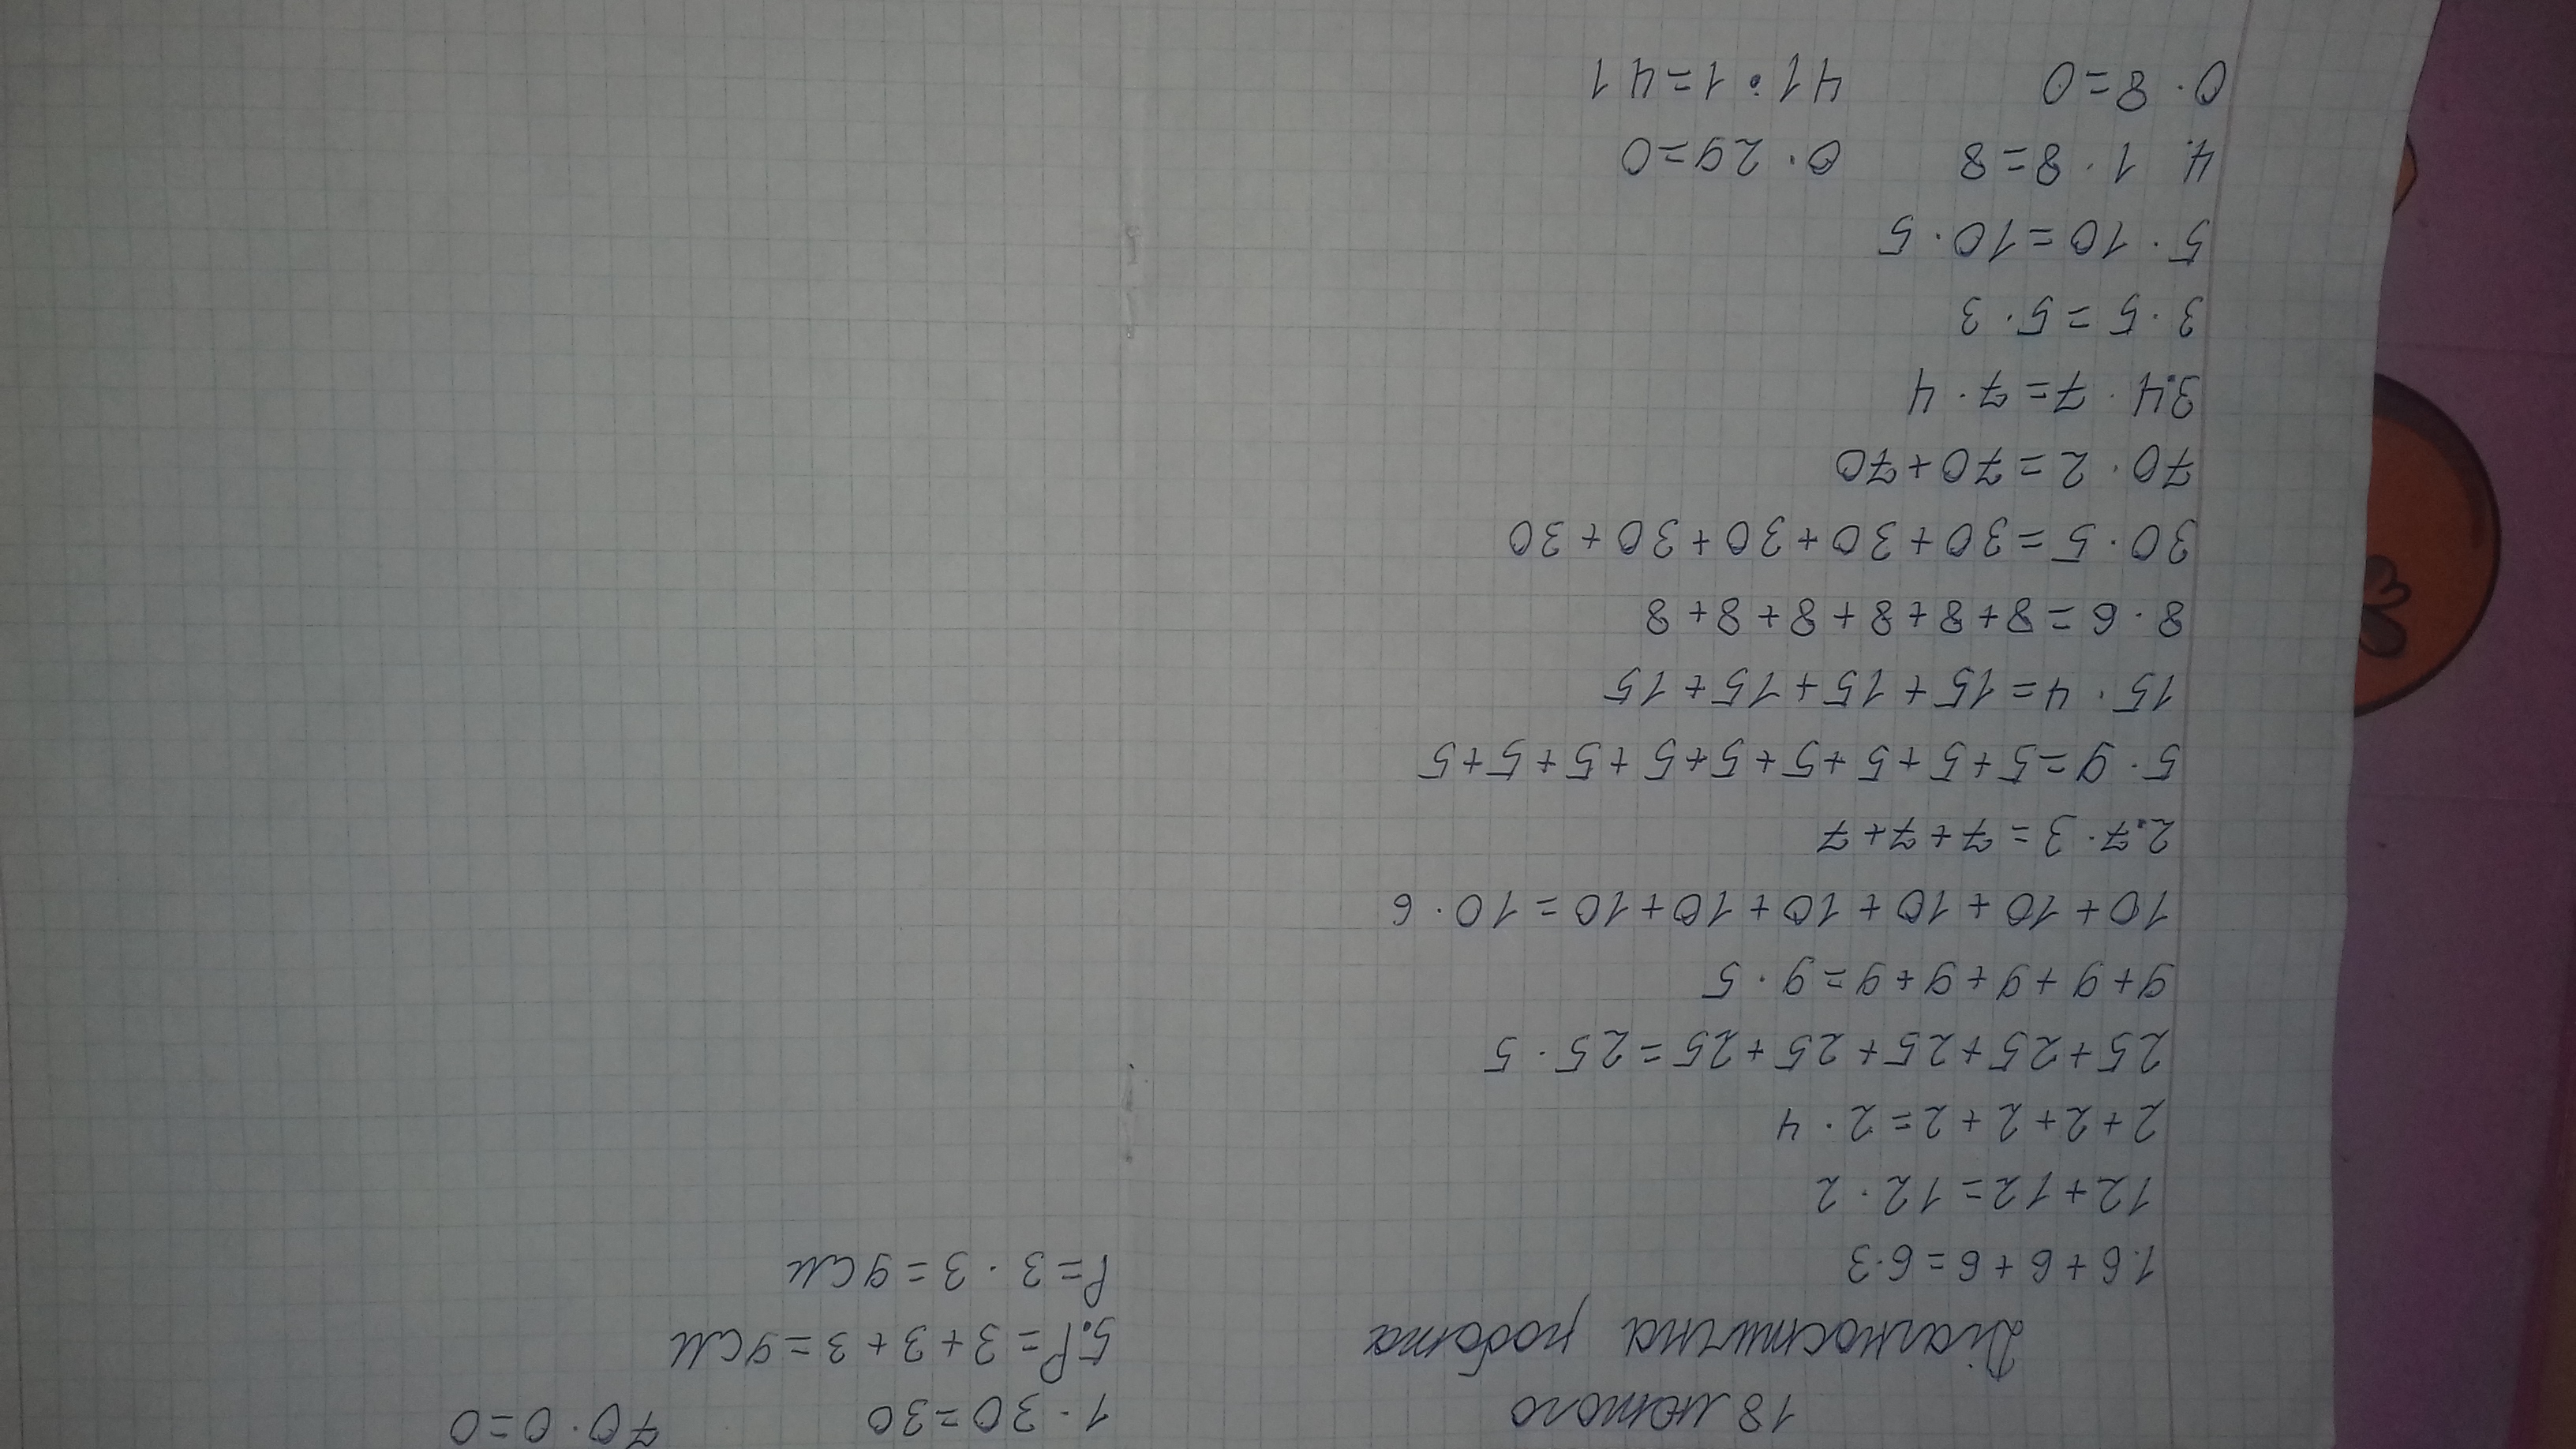 18 лютого
Діагностична робота
1. 6 + 6 + 6 = 6 · 3
12 + 12 = 12 · 2
2 + 2 + 2 + 2 = 2 · 4
25 + 25 + 25 + 25 + 25 = 25 · 5
9 + 9 + 9 + 9 + 9 = 9 · 5
10 + 10 + 10 + 10 + 10 + 10 = 10 · 6
2. 7 · 3 = 7 + 7 + 7
5 · 9 = 5 + 5 + 5 + 5 + 5 + 5 + 5 + 5 + 5
15 · 4 = 15 + 15 + 15 + 15
8 · 6 = 8 + 8 + 8 + 8 + 8 + 8
30 · 5 = 30 + 30 + 30 + 30 + 30
70 · 2 = 70 + 70
3. 4 · 7 = 7 · 4
3 · 5 = 5 · 3
5 · 10 = 10 · 5
4. 1 · 8 = 8 0 · 29 = 0
0 · 8 = 0 41 · 1 = 41
1 · 30 = 30 70 · 0 = 0
5. P = 3 + 3 + 3 = 9 см
P = 3 · 3 = 9 см